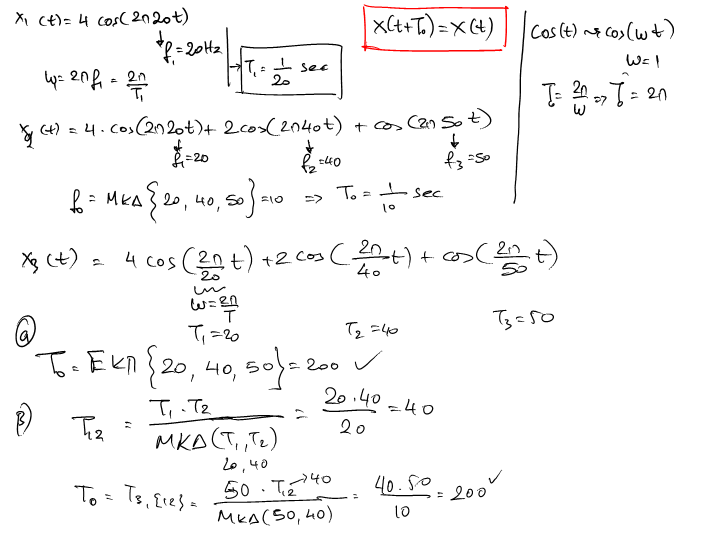 x₁(t) = 4 cos(2π20t)
↓ f₁ = 20Hz
ω₁ = 2πf₁ = 2π/T₁
→ T₁ = 1/20 sec
x(t+T₀) = x(t)
cos(t) ⇝ cos(ωt)
ω=1
T₀ = 2π/ω ⇒ T₀ = 2π
x₂(t) = 4 · cos(2π20t) + 2 cos(2π40t) + cos(2π50t)
f₁=20 f₂=40 f₃=50
f₀ = ΜΚΔ {20, 40, 50} = 10 ⇒ T₀ = 1/10 sec
x₃(t) = 4 cos(2π/20 t) + 2 cos(2π/40 t) + cos(2π/50 t)
ω = 2π/T
α T₁=20 T₂=40 T₃=50
T₀ = ΕΚΠ {20, 40, 50} = 200 ✓
β) T₁₂ = T₁·T₂ / ΜΚΔ(T₁,T₂) = 20·40 / 20 = 40
20, 40
T₀ = T₃,{12} = 50 · T₁₂→40 / ΜΚΔ(50,40) = 40·50 / 10 = 200 ✓